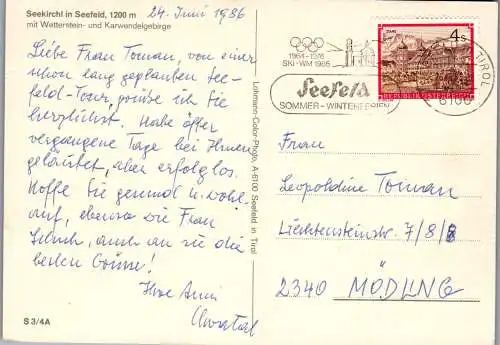 Seekirchl in Seefeld, 1200 m
mit Wetterstein- und Karwendelgebirge
24. Juni 1986
Liebe Frau Toman, von einer
schon lang geplanten See-
feld-Tour, grüße ich Sie
herzlichst. Habe öfter
vergangene Tage bei Ihnen
geläutet, aber erfolglos.
Hoffe Sie gesund u. wohl-
auf, ebenso die Frau
auch an sie die
besten Grüsse!
Ihre Anni
S 3/4A
Lohmann-Color-Photo, A-6100 Seefeld in Tirol
1964-1976
SKI-WM 1985
Seefeld
SOMMER-WINTER
TIROL
6100
4 S
STAMS
REPUBLIK ÖSTERREICH
Frau
Leopoldine Toman
Liechtensteinstr. 7/8/8
2340 MÖDLING